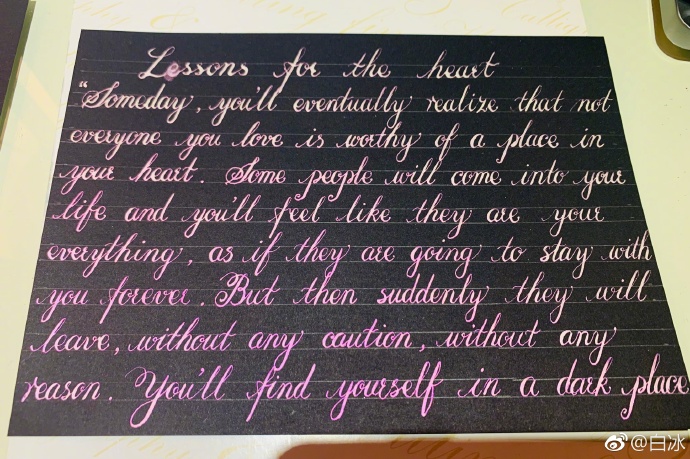 Lessons for the heart
"Someday, you'll eventually realize that not
everyone you love is worthy of a place in
your heart. Some people will come into your
life and you'll feel like they are your
everything, as if they are going to stay with
you forever. But then suddenly they will
leave, without any caution, without any
reason. You'll find yourself in a dark place
@白冰